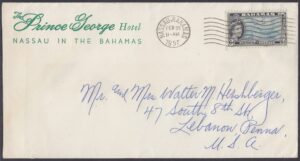 The Prince George Hotel
NASSAU IN THE BAHAMAS
NASSAU BAHAMAS
FEB
1957
BAHAMAS
Mr. and Mrs Walter M. Hershberger,
47 South 8th St,
Lebanon, Penna.
U.S.A